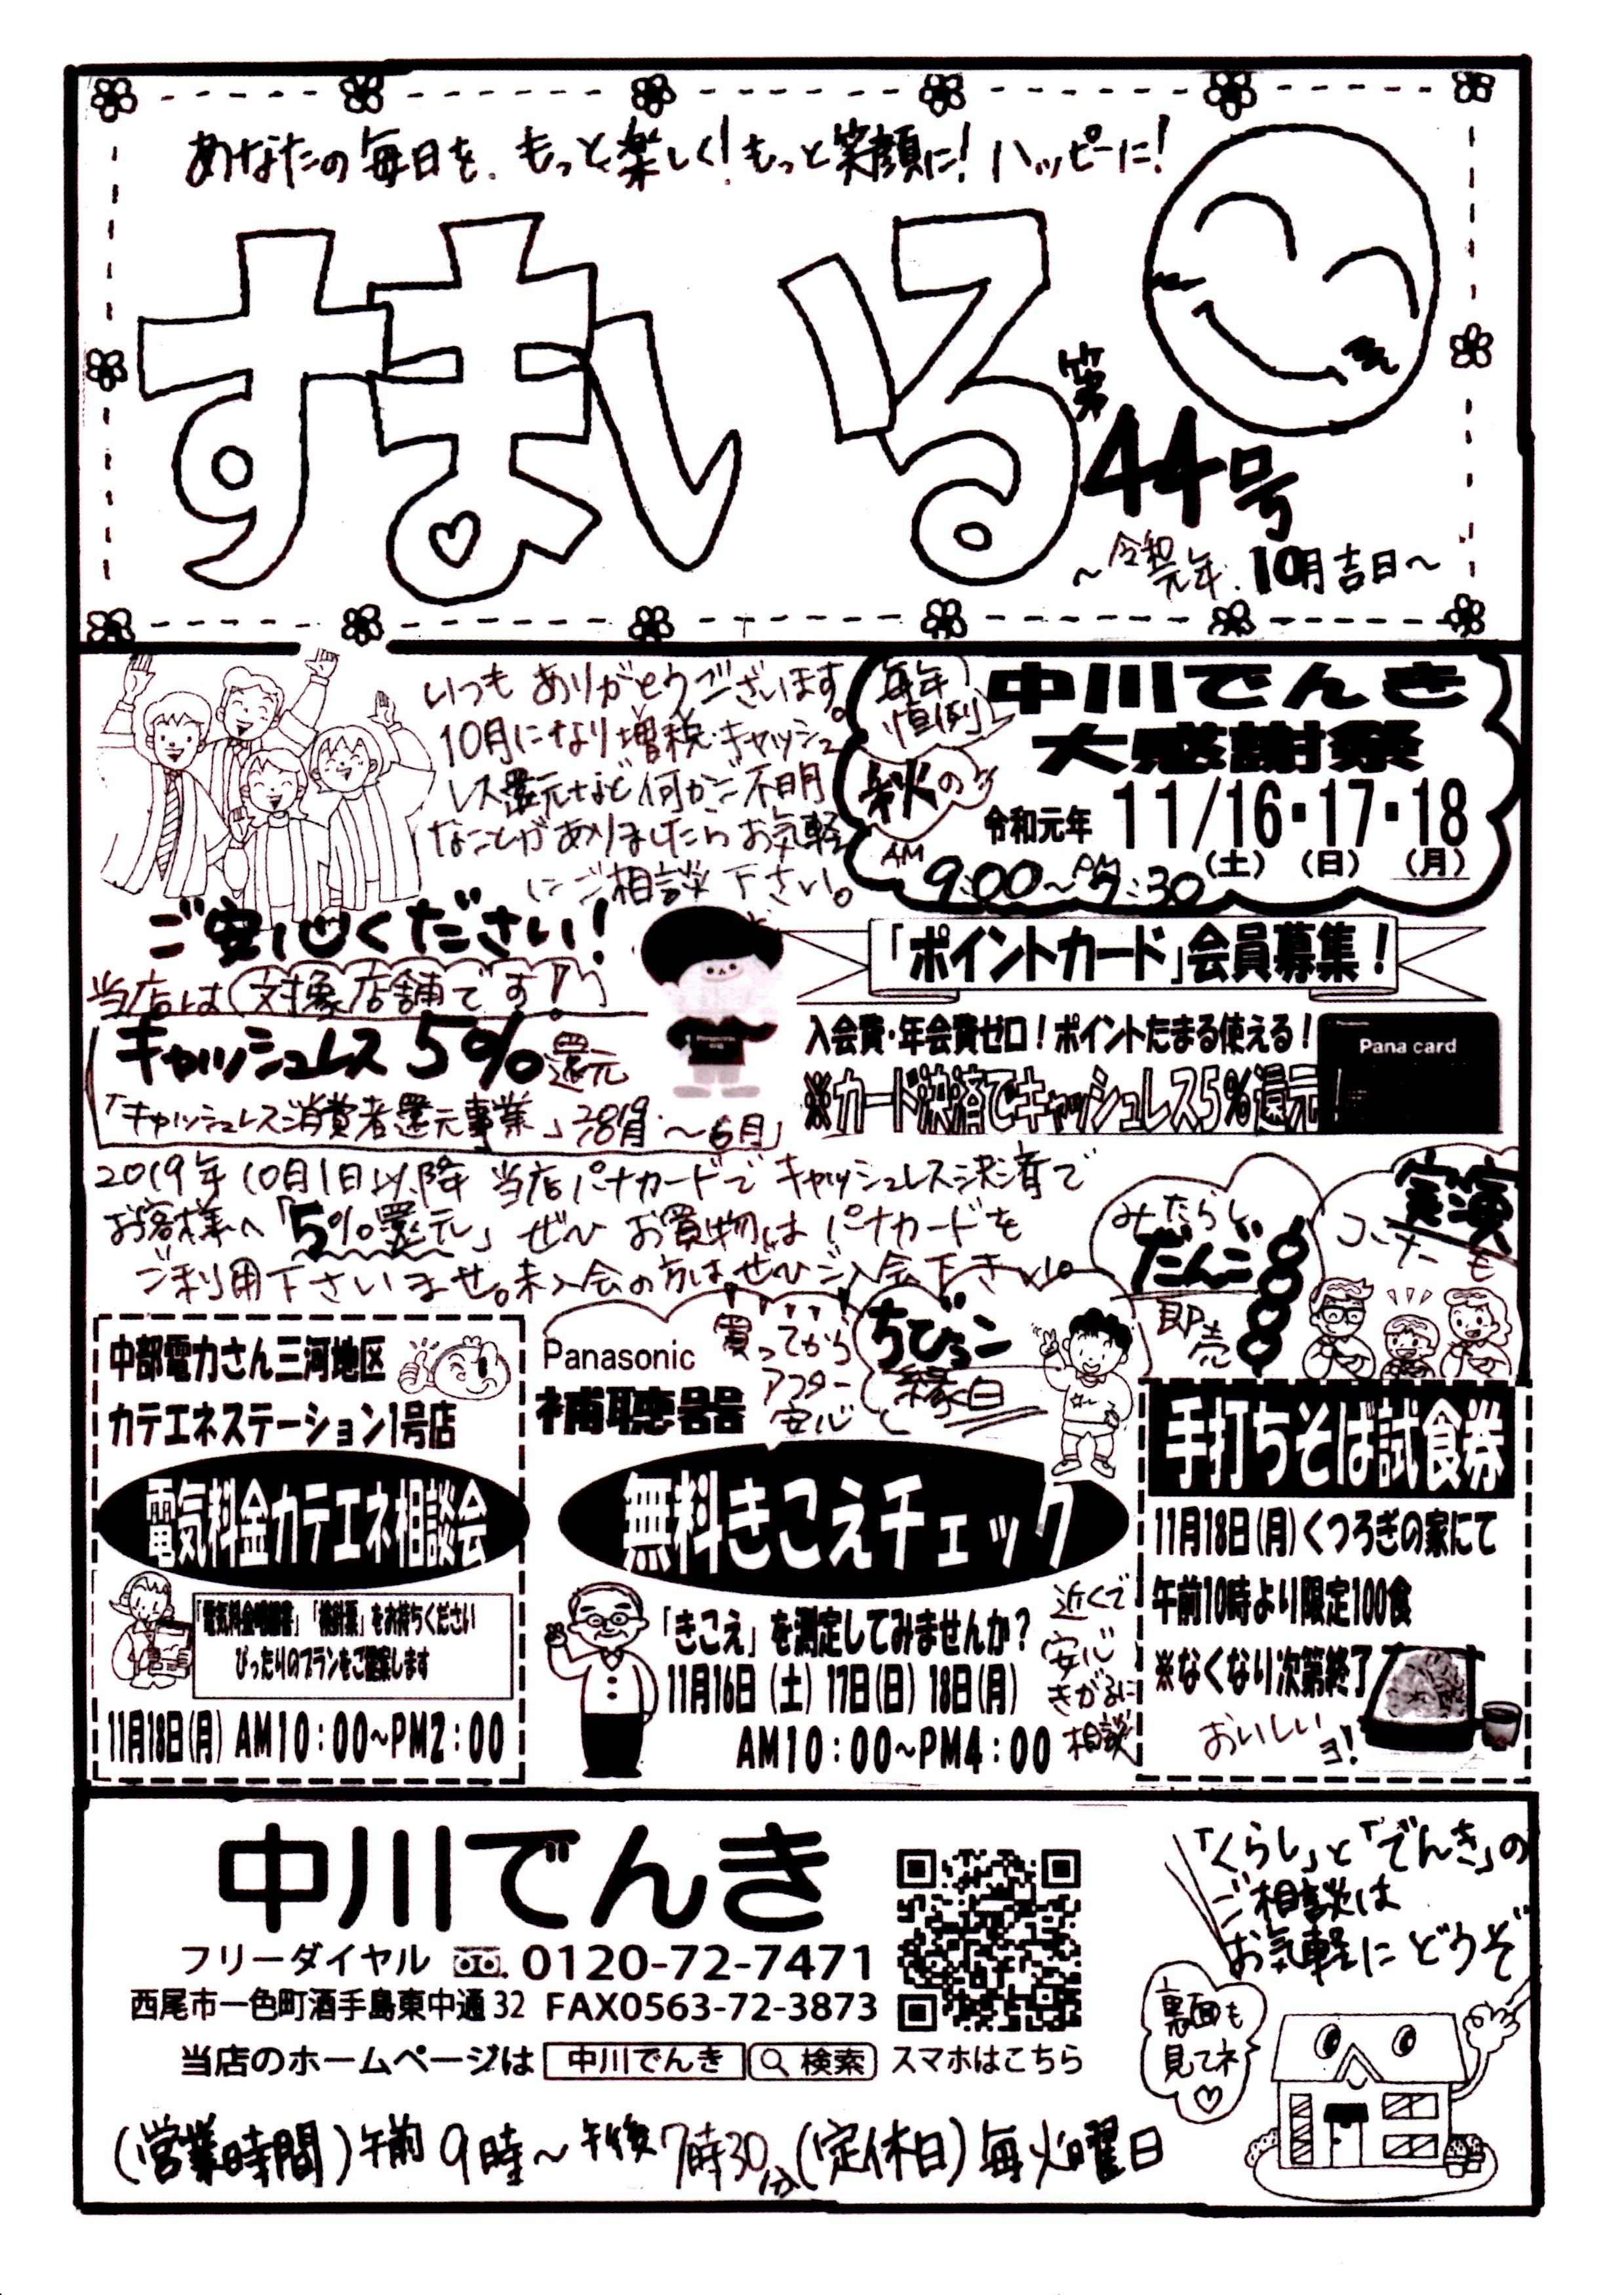 あなたの毎日を、もっと楽しく!もっと笑顔に!ハッピーに!
すまいる
第44号
～令和元年.10月吉日～
いつもありがとうございます。
10月になり増税・キャッシュ
レス還元など何かご不明
なことがありましたらお気軽
にご相談下さい。
毎年恒例
秋の
中川でんき
大感謝祭
令和元年 11/16・17・18
(土) (日) (月)
AM9:00～PM7:30
ご安心ください!
当店は対象店舗です!
キャッシュレス5%還元
「キャッシュレス消費者還元事業」 ～6月
「ポイントカード」会員募集!
入会費・年会費ゼロ!ポイントたまる使える!
※カード決済でキャッシュレス5%還元!
Pana card
2019年10月1日以降 当店パナカードでキャッシュレス決済で
お客様へ「5%還元」ぜひお買物はパナカードを
ご利用下さいませ。未入会の方はぜひご入会下さい。
みたらし
だんご
即売
実演
コーナーも
中部電力さん三河地区
カテエネステーション1号店
電気料金カテエネ相談会
「検針票」をお持ちください
ぴったりのプランをご提案します
11月18日(月) AM10:00～PM2:00
Panasonic
補聴器
買ってから
アフター
安心
ちびっこ
縁日
無料きこえチェック
「きこえ」を測定してみませんか?
11月16日(土) 17日(日) 18日(月)
AM10:00～PM4:00
近くで
安心
きがるに
相談
手打ちそば試食券
11月18日(月)くつろぎの家にて
午前10時より限定100食
※なくなり次第終了
おいしい
ヨ!
中川でんき
フリーダイヤル 0120-72-7471
西尾市一色町酒手島東中通32 FAX0563-72-3873
当店のホームページは 中川でんき 検索 スマホはこちら
(営業時間)午前9時～午後7時30分(定休日)毎火曜日
「くらし」と「でんき」の
ご相談は
お気軽にどうぞ
裏面も
見てネ